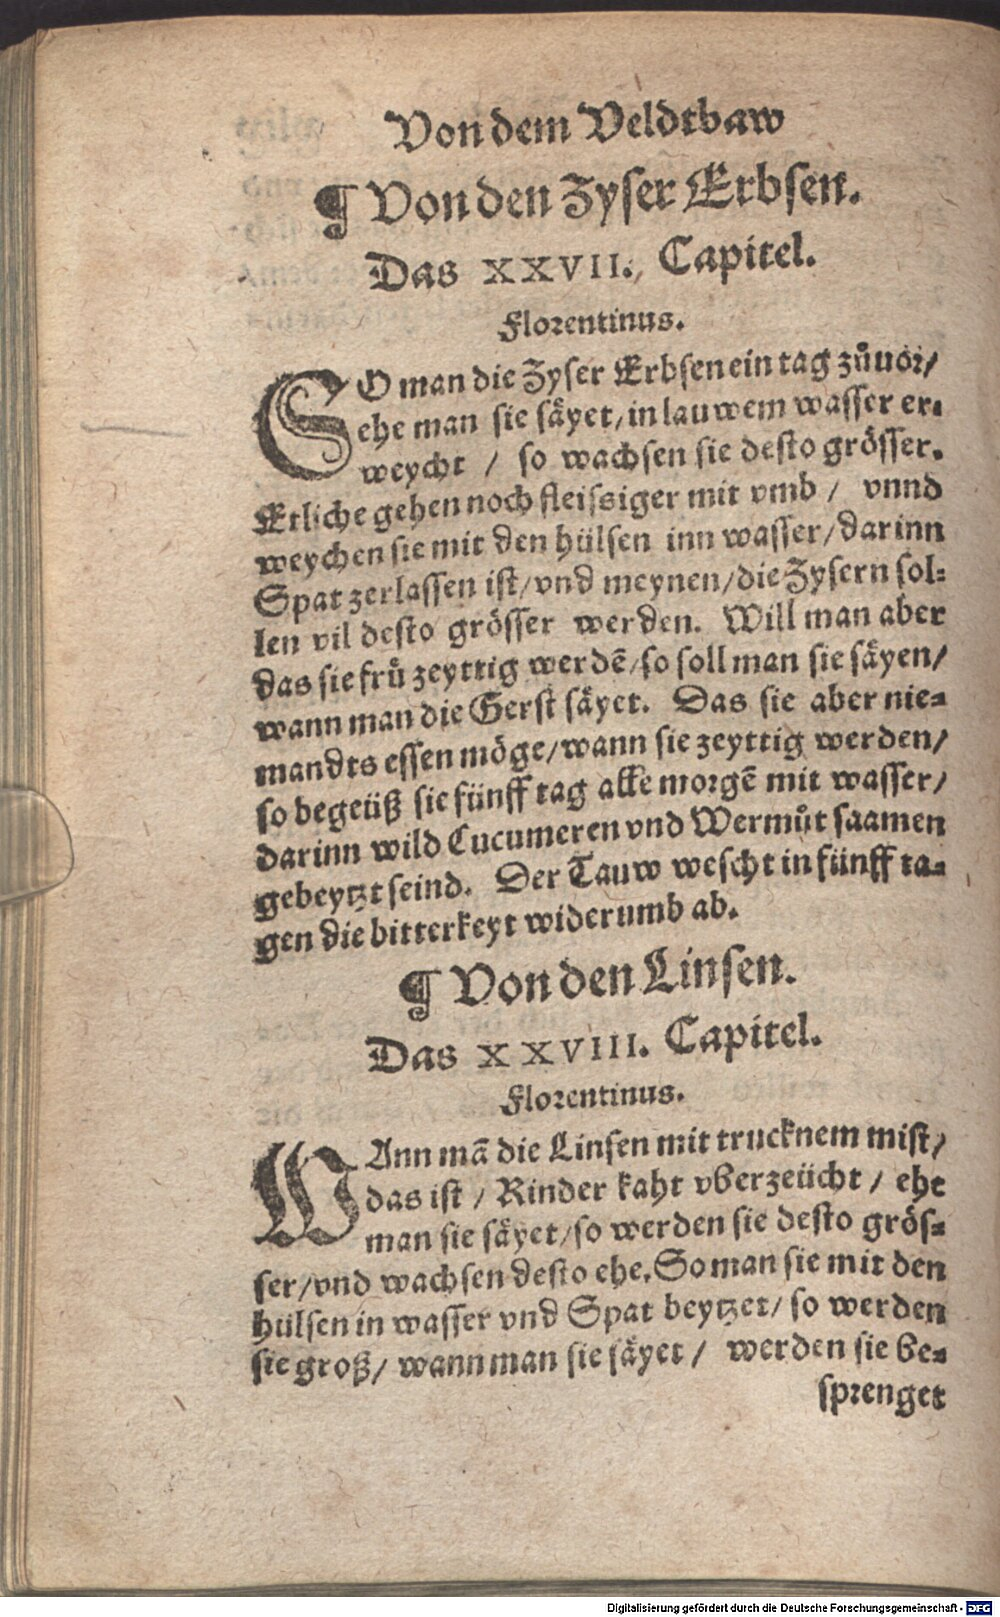 Von dem Veldtbaw
¶ Von den Zyser Erbsen.
Das XXVII. Capitel.
Florentinus.
SO man die Zyser Erbsen ein tag zůuor/
ehe man sie säyet/in lauwem wasser er-
weycht / so wachsen sie desto grösser.
Etliche gehen noch fleissiger mit vmb / vnnd
weychen sie mit den hülsen inn wasser/darinn
Spat zerlassen ist/vnd meynen/die Zysern sol-
len vil desto grösser werden. Will man aber
das sie frů zeyttig werdē/so soll man sie säyen/
wann man die Gerst säyet. Das sie aber nie-
mandts essen möge/wann sie zeyttig werden/
so begeüß sie fünff tag alle morgē mit wasser/
darinn wild Cucumeren vnd Wermůt saamen
gebeytzt seind. Der Tauw wescht in fünff ta-
gen die bitterkeyt widerumb ab.
¶ Von den Linsen.
Das XXVIII. Capitel.
Florentinus.
WAnn mā die Linsen mit trucknem mist/
das ist / Rinder kaht vberzeücht / ehe
man sie säyet/so werden sie desto grös-
ser/vnd wachsen desto ehe. So man sie mit den
hülsen in wasser vnd Spat beytzet/ so werden
sie groß/ wann man sie säyet / werden sie be-
sprenget
Digitalisierung gefördert durch die Deutsche Forschungsgemeinschaft - DFG